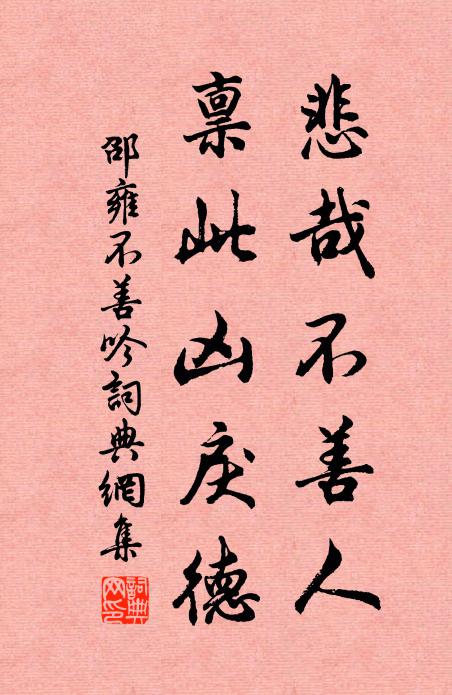 悲哉不善人
禀此凶戾德
邵雍不善吟詞典網集
詞典網印